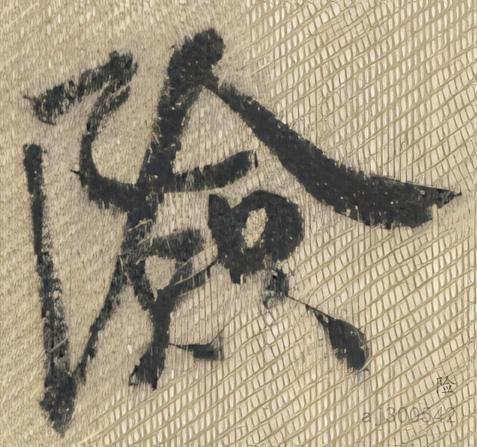 險
险
aj300542